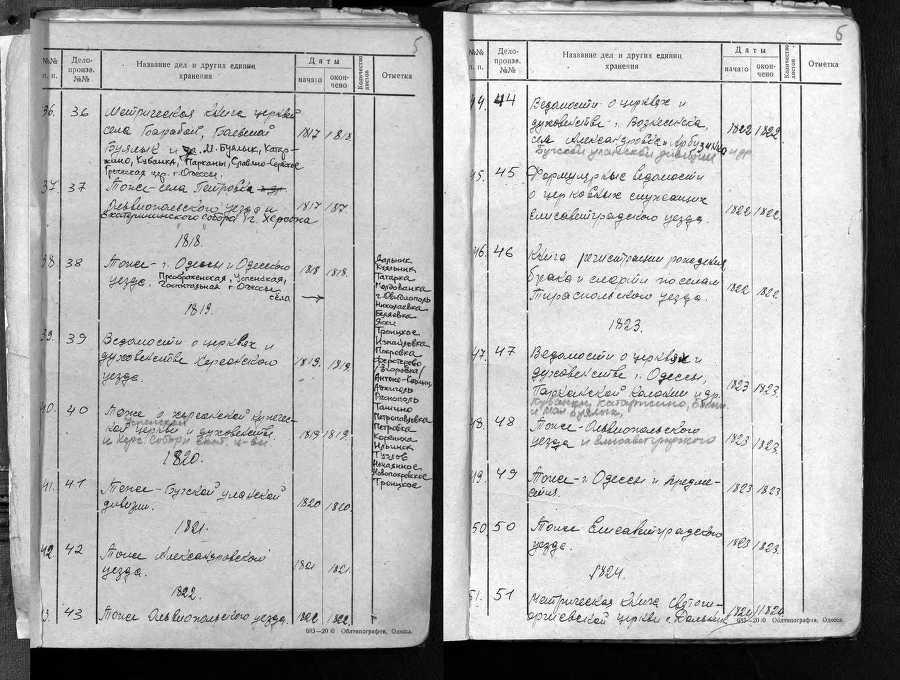 5
№№ п. п.
Дело- произв. №№
Название дел и других единиц хранения
Даты
начато
окон- чено
Количество листов
Отметка
36. 36 Метрическая книга церквей
села Барабой, Баевской
Буялык и М. Буялык, Катар-
жино, Кубанка, Парканы, Славяно-Сербское
Греческая цер. г. Одессы.
1817 1818
37. 37 Тоже - села Петровка
Ольвиопольского уезда и
Екатерининского собора г. Херсона
1817 1817
1818.
38. 38 Тоже - г. Одессы и Одесского
уезда. Преображенская, Успенская,
Госпитальная г. Одессы
села →
1818 1818.
Дальник
Куяльник
Татарка
Молдованка
г. Овидиополь
Николаевка
Беляевка
Яски
Троицкое
Измайловка
Покровка
Ташино
Петропавловка
Петровка
Кордынка
Ильинка
Гудзов
Нехаянное
Новопокровское
Троицкое
1819.
39. 39 Ведомости о церквях и
духовенстве Херсонского
уезда.
1819. 1819.
40. 40 Тоже о херсонской купечес-
кой церкви и духовенстве.
1819 1819.
1820.
41. 41 Тоже - Бугской уланской
дивизии.
1820 1820.
1821.
42. 42 Тоже Александровской
уезда.
1821 1821.
1822.
43. 43 Тоже Ольвиопольского уезда.
1822 1822.
683—20 ф Облтипография, Одесса.
6
№№ п. п.
Дело- произв. №№
Название дел и других единиц хранения
Даты
начато
окон- чено
Количество листов
Отметка
44. 44 Ведомости о церквях и
духовенстве г. Вознесенска,
сел Александровка, Арбузинка
Бугской уланской дивизии и др
1822 1822.
45. 45 Формулярные ведомости
о церковных служащих
Елисаветградского уезда.
1822 1822.
46. 46 Книга регистрации рождений,
брака и смерти по селам
Тираспольского уезда.
1822 1822
1823.
47. 47 Ведомости о церквях и
духовенстве г. Одессы,
Парканской колонии и др.
Кубанки, Катаржино, Больш.
и мал Буялык,
1823 1823.
48. 48 Тоже - Ольвиопольского
уезда и елисаветградского
1823 1823.
49. 49 Тоже - г. Одессы и предме-
стия.
1823 1823.
50. 50 Тоже Елисаветградского
уезда.
1823 1823.
1824.
51. 51 Метрическая книга Святоге-
оргиевской церкви с. Дальник
683—20 ф Облтипография, Одесса.